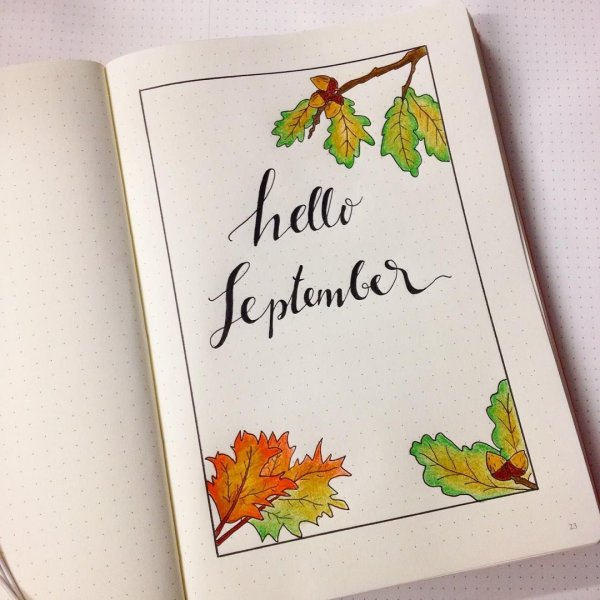 hello
September
23